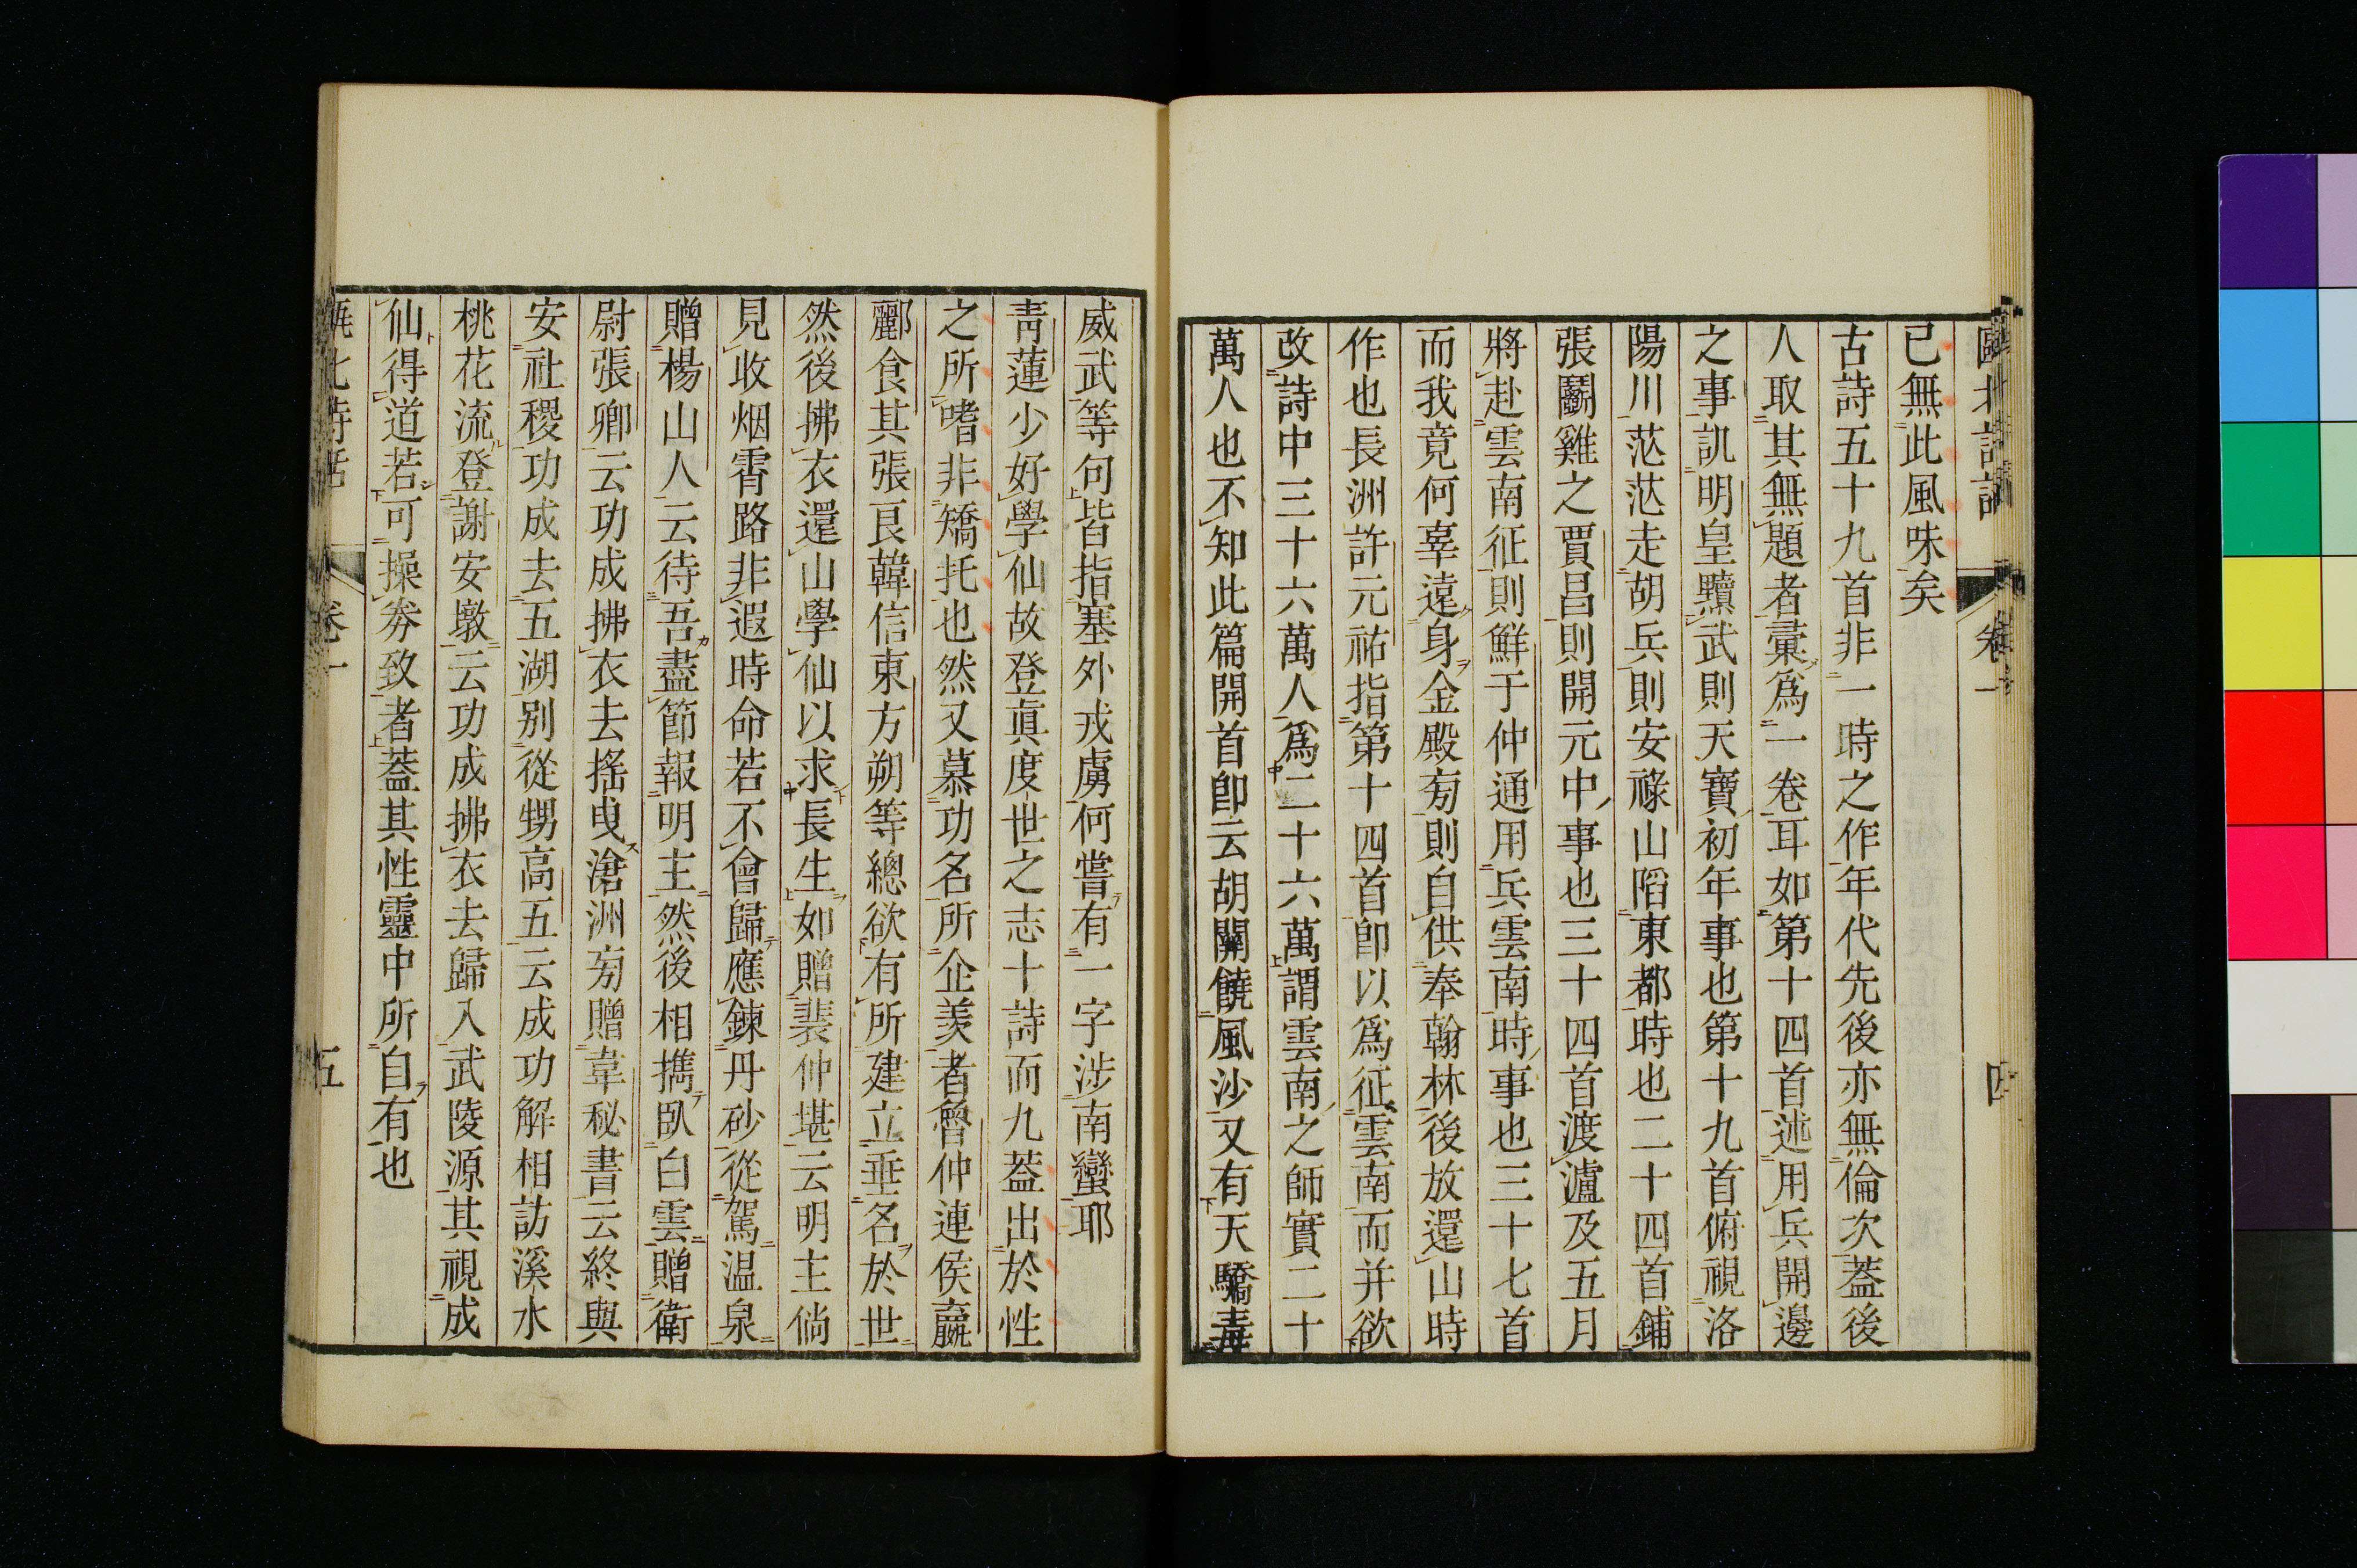 甌北詩話 卷一 四
已無此風味矣
古詩五十九首非一時之作年代先後亦無倫次蓋後
人取其無題者彙爲一卷耳如第十四首述用兵開邊
之事訊明皇黷武則天寶初年事也第十九首俯視洛
陽川茫茫走胡兵則安祿山陷東都時也二十四首鋪
張鬭雞之賈昌則開元中事也三十四首渡瀘及五月
將赴雲南征則鮮于仲通用兵雲南時事也三十七首
而我竟何辜遠身金殿旁則自供奉翰林後放還山時
作也長洲許元祐指第十四首卽以爲征雲南而并欲
改詩中三十六萬人爲二十六萬謂雲南之師實二十
萬人也不知此篇開首卽云胡關饒風沙又有天驕毒
威武等句皆指塞外戎虜何嘗有一字涉南蠻耶
靑蓮少好學仙故登眞度世之志十詩而九蓋出於性
之所嗜非矯托也然又慕功名所企羨者魯仲連侯嬴
酈食其張良韓信東方朔等總欲有所建立垂名於世
然後拂衣還山學仙以求長生如贈裴仲堪云明主倘
見收烟霄路非遐時命若不會歸應鍊丹砂從駕温泉
贈楊山人云待吾盡節報明主然後相擕臥白雲贈衛
尉張卿云功成拂衣去搖曳滄洲旁贈韋秘書云終與
安社稷功成去五湖别從甥高五云成功解相訪溪水
桃花流登謝安墩云功成拂衣去歸入武陵源其視成
仙得道若可操劵致者蓋其性靈中所自有也
甌北詩話 卷一 五